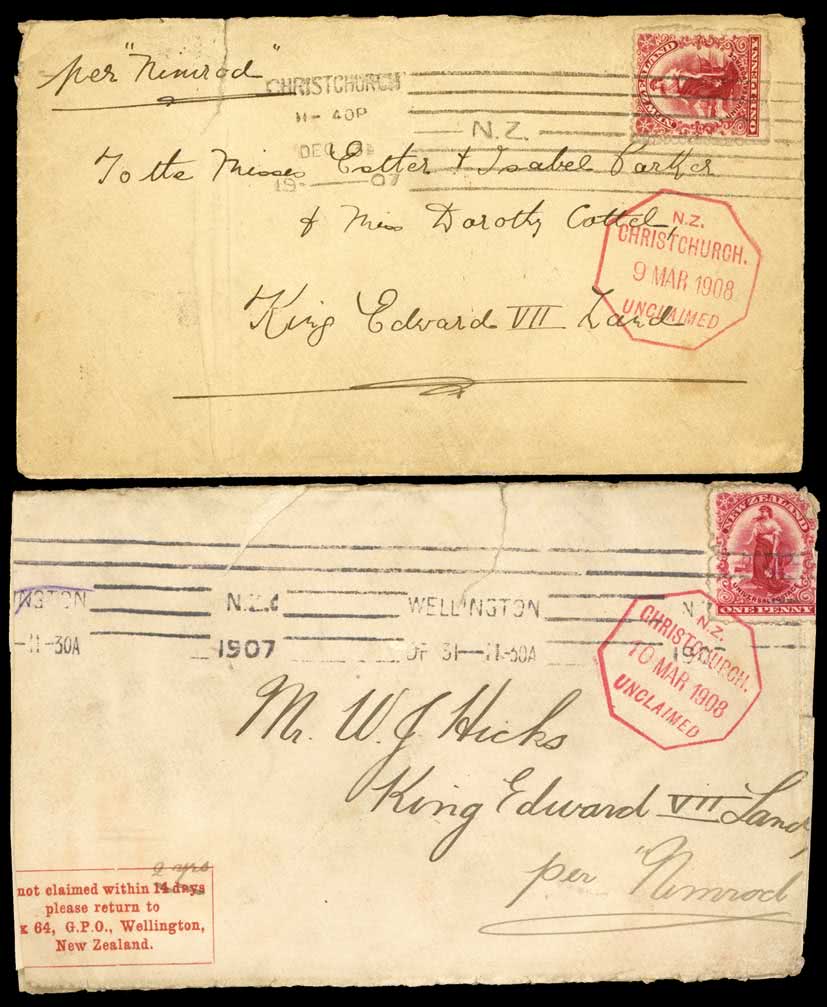 per "Nimrod"
NEW ZEALAND
ONE PENNY
CHRISTCHURCH
11-40P
N.Z.
DEC
19 07
To the Misses Esther & Isabel Parker
& Miss Dorothy Cottel,
King Edward VII Land
N.Z.
CHRISTCHURCH.
9 MAR 1908
UNCLAIMED
NEW ZEALAND
UNIVERSAL POSTAGE
ONE PENNY
NGTON
N.Z.
WELLINGTON
N.Z
-11-30A
1907
31-11-30A
190
N.Z.
CHRISTCHURCH.
10 MAR 1908
UNCLAIMED
Mr. W. J. Hicks
King Edward VII Land,
per "Nimrod
2 yrs
not claimed within 14 days
please return to
x 64, G.P.O., Wellington,
New Zealand.